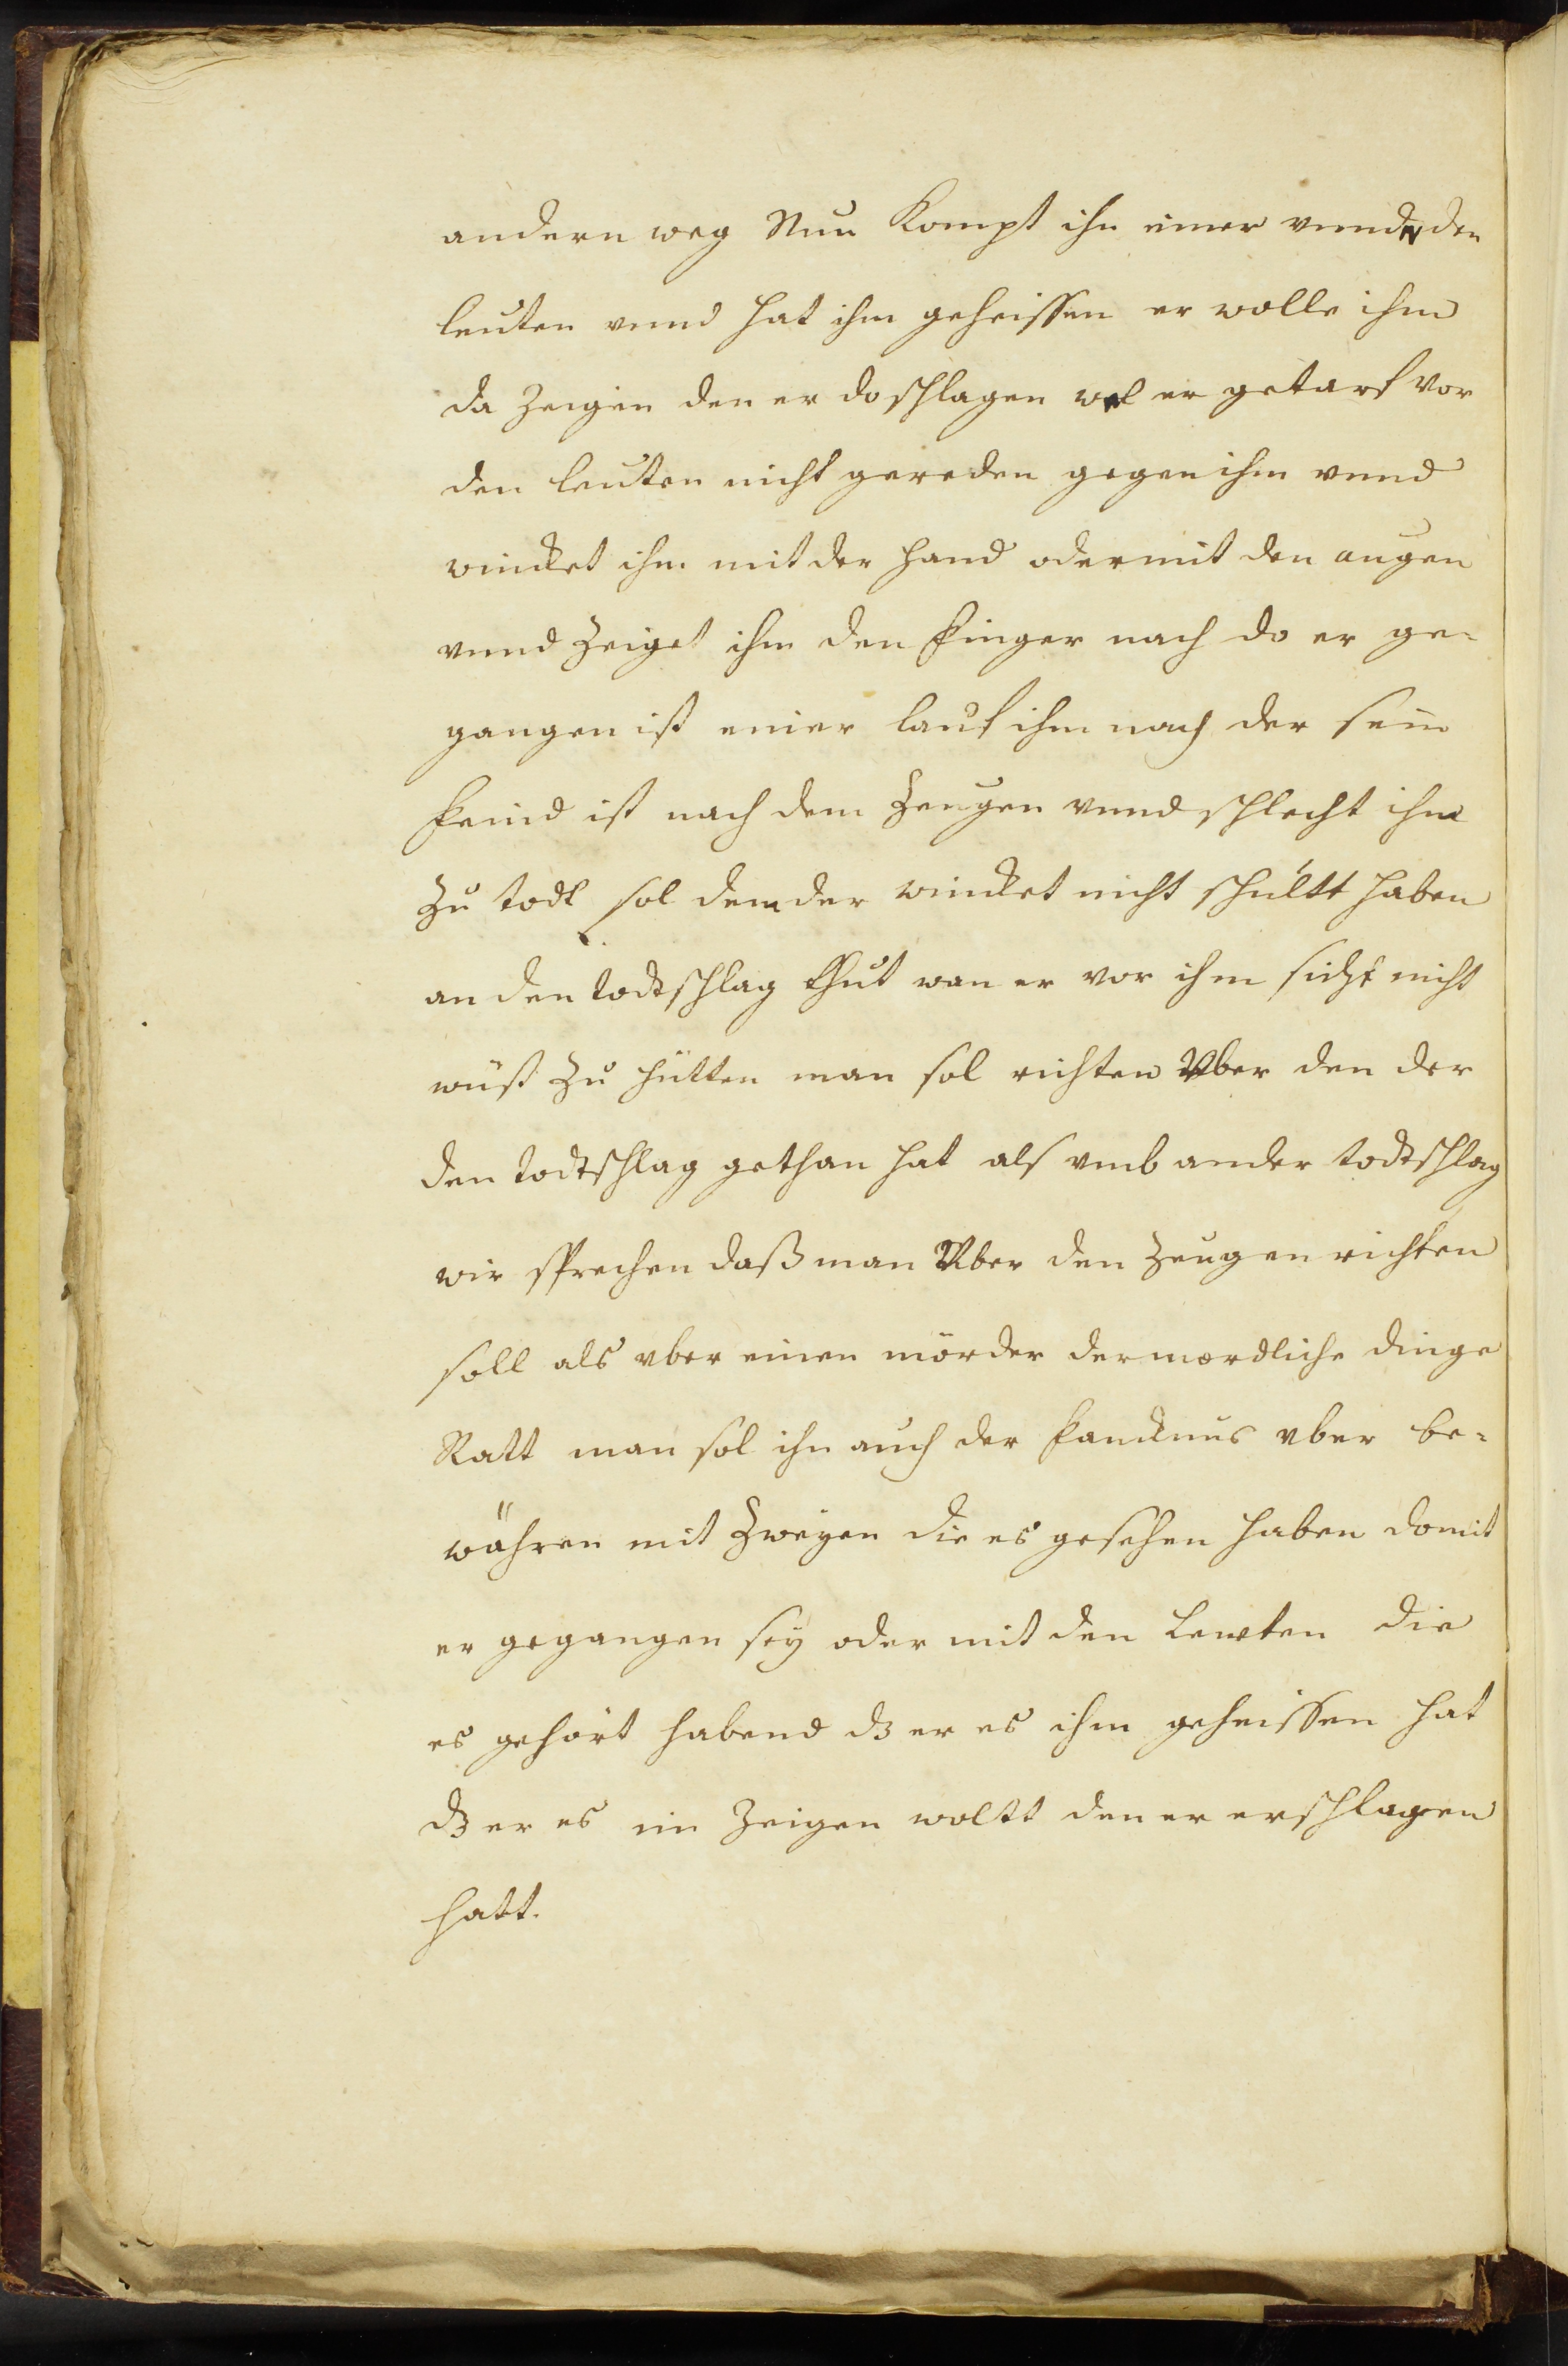 andern weg Nun kompt ihn einer vnnder den
leuten vnnd hat ihm geheissen er wolle ihm
da zeigen den er do schlagen wel er getarf vor
den leuten nicht gereden gegen ihm vnnd
wincket ihm mit der hand oder mit den augen
vnnd zeiget ihm den finger nach do er ge-
gangen ist einer lauf ihm nach der sein
feind ist nach dem zeugen vnnd schlecht ihm
zu todt sol dem der wincket nicht schultt haben
an den todtschlag thut wan er vor ihm sicht nicht
wüst zu hütten man sol richten Vber den der
den todtschlag gethan hat als vmb ander todtschlag
wir sprechen daß man Vber den zeugen richten
soll als vber einen mörder der mordliche dinge
Ratt man sol ihn auch der fancknus vber be-
währen mit zweyen die es gesehen haben domit
er gegangen sey oder mit den Lewten die
es gehört habend dz er es ihm geheissen hat
dz er es im zeigen woltt den er erschlagen
hatt.